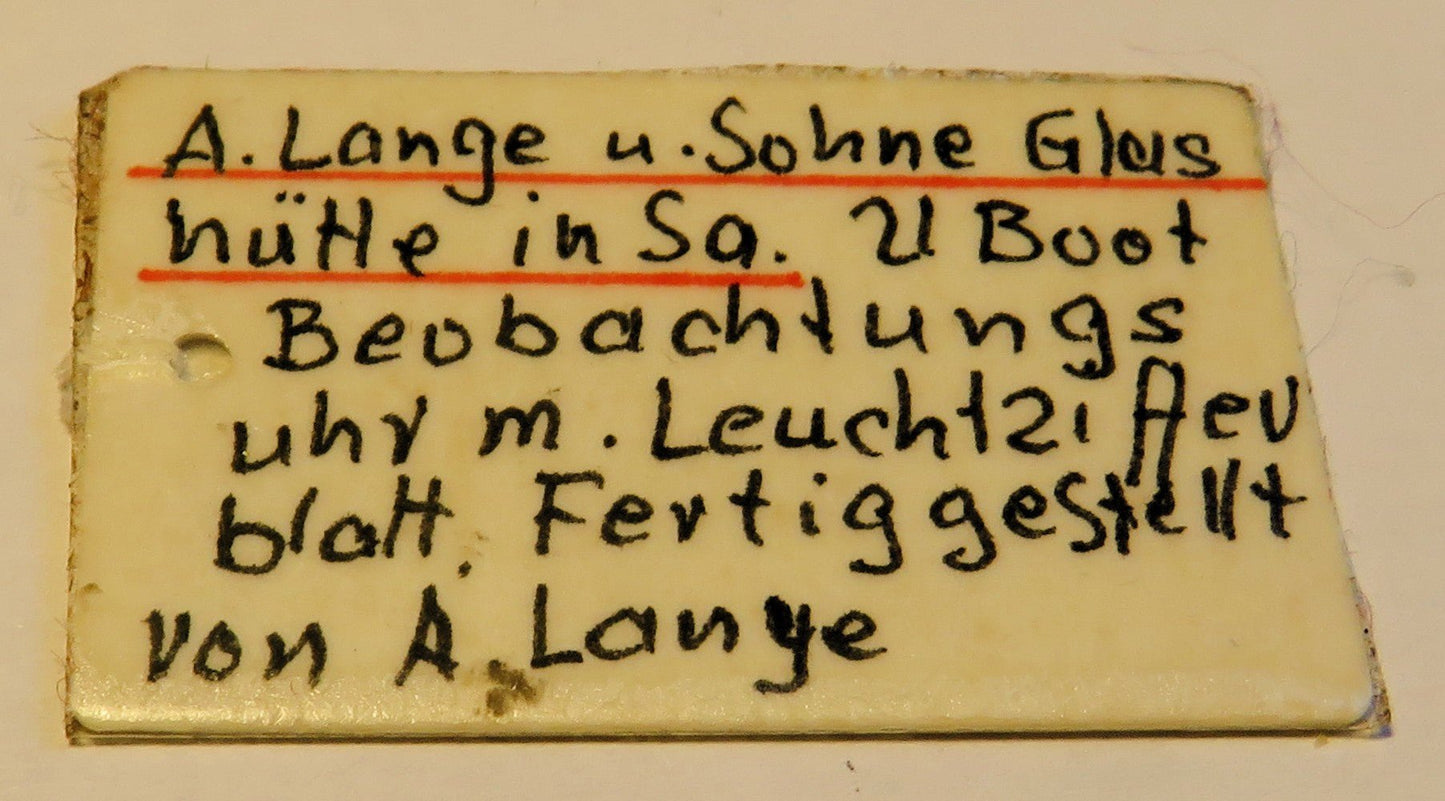 A. Lange u. Sohne Glas
hütte in Sa. U Boot
Beobachtungs
uhr m. Leuchtziffer
blatt. Fertig gestellt
von A. Lange